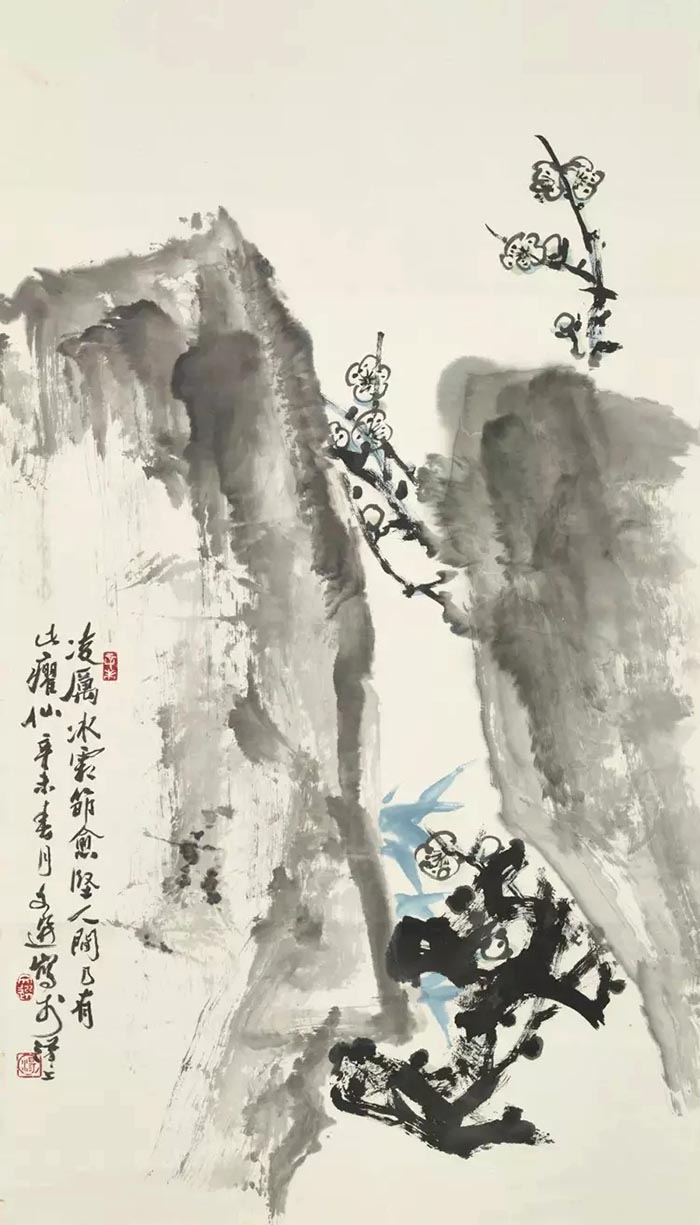 辛未
凌厲冰霜節愈堅人間乃有
此癯仙辛未春月文選寫於漢上